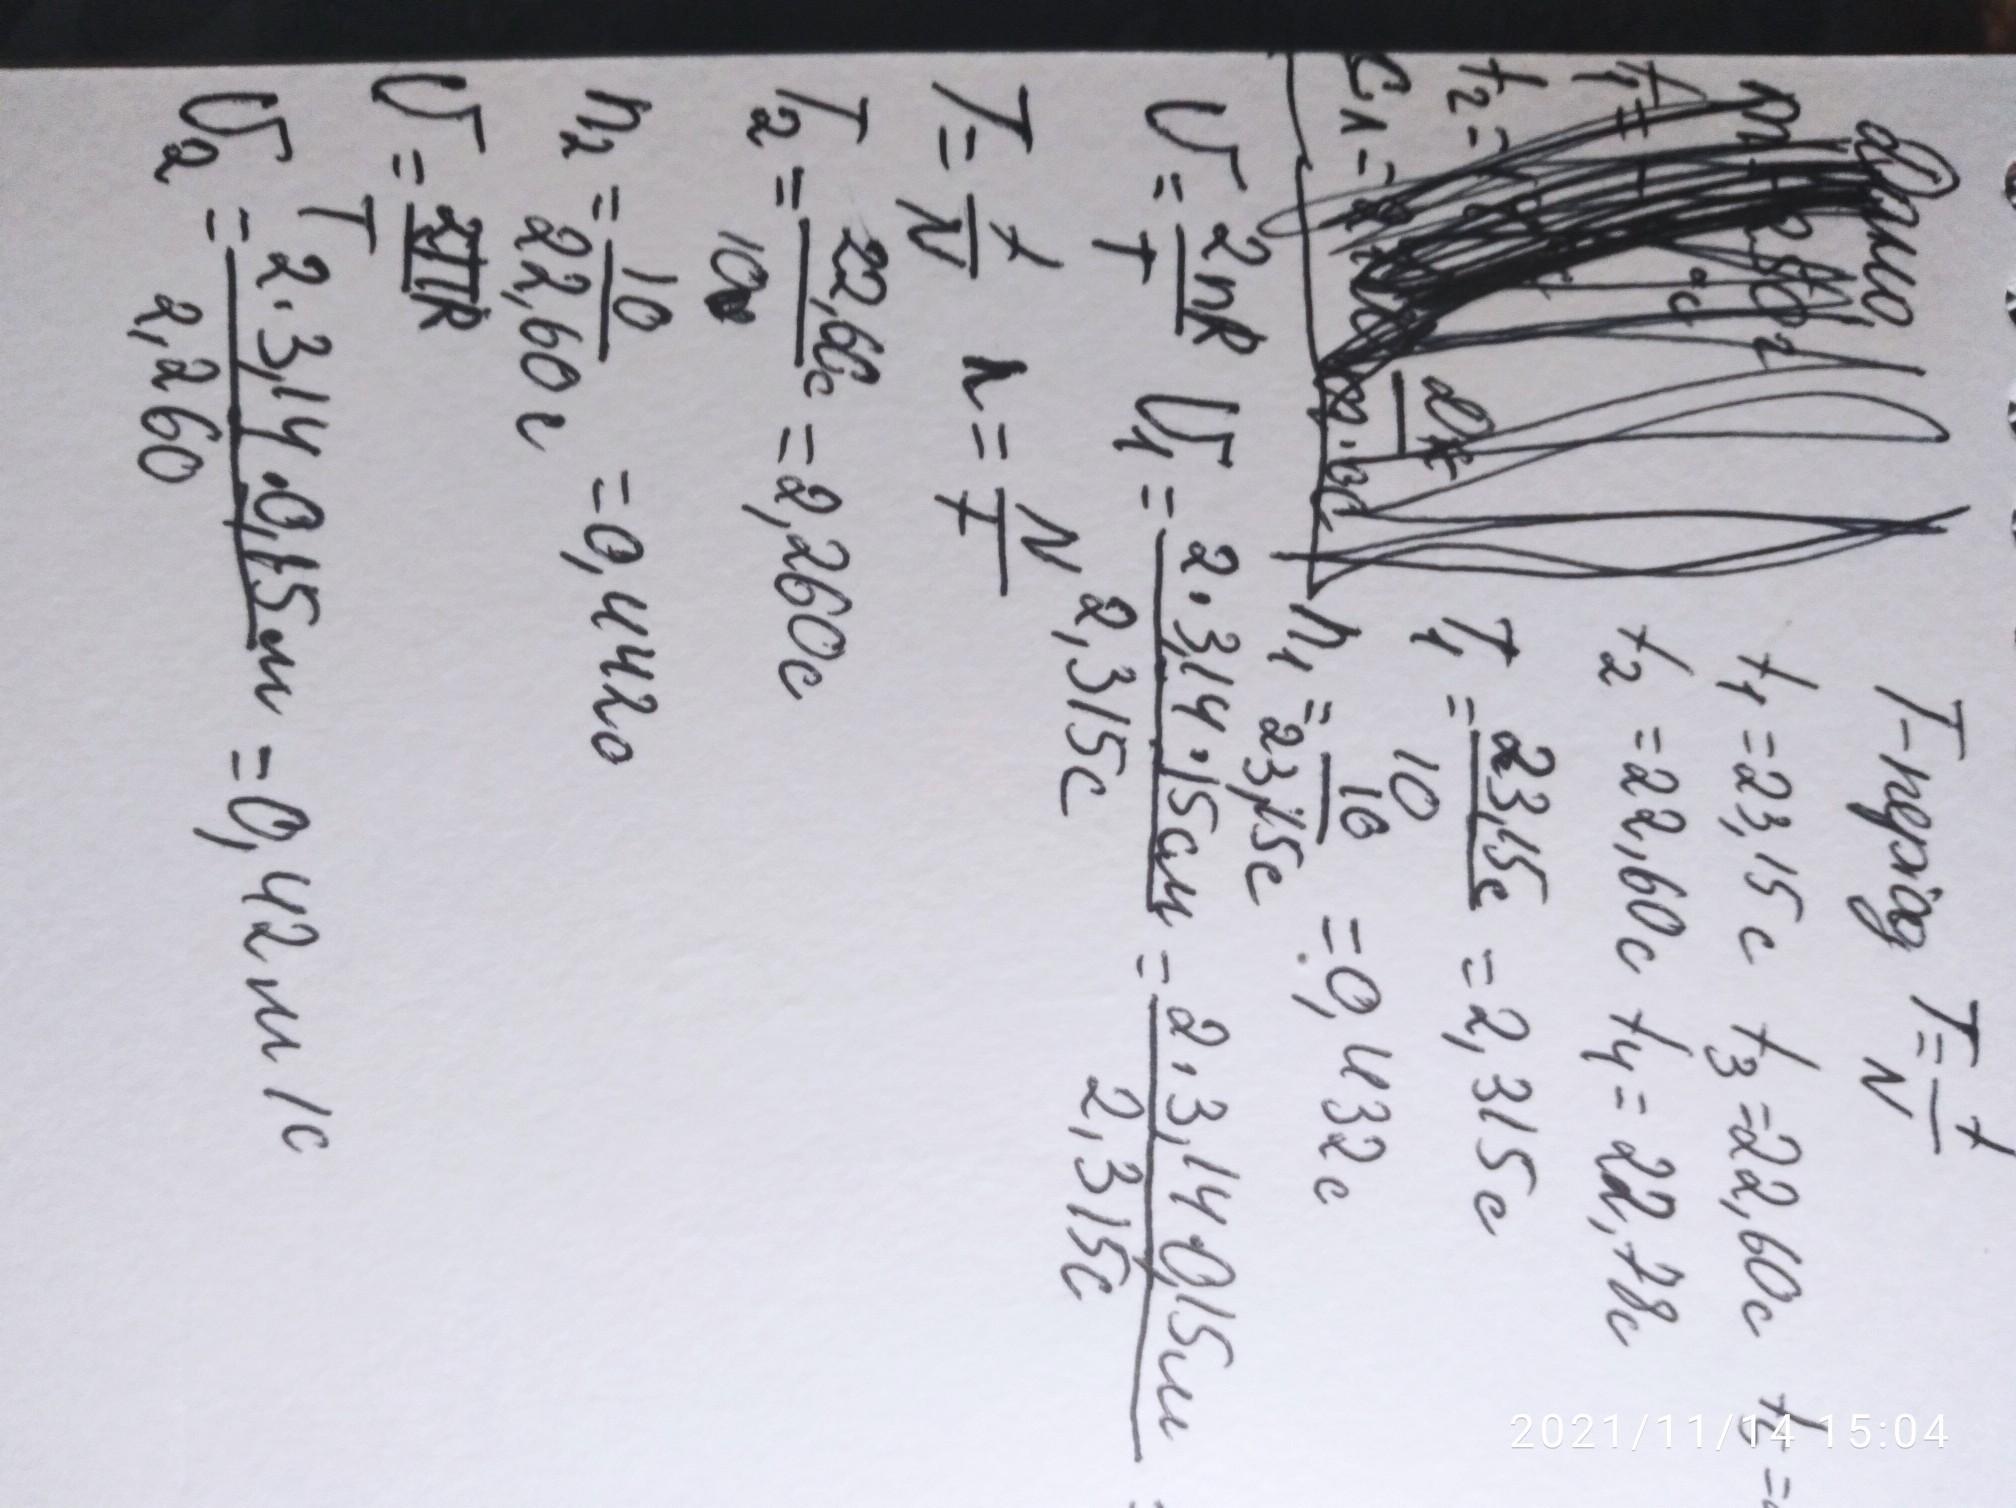 Дано
T-період T = t/N
t₁ = 23,15 с t₃ = 22,60 с t₅ =
t₂ = 22,60 с t₄ = 22,78 с
T₁ = 23,15с/10 = 2,315 с
n₁ = 10/23,15с = 0,432 с
υ = 2πR/T υ₁ = 2·3,14·15см/2,315с = 2·3,14·0,15м/2,315с =
T = t/N n = N/t
T₂ = 22,60с/10 = 2,260 с
n₂ = 10/22,60 = 0,4420
υ = 2πR/T
υ₂ = 2·3,14·0,15м/2,260 = 0,42 м/с
2021/11/14 15:04